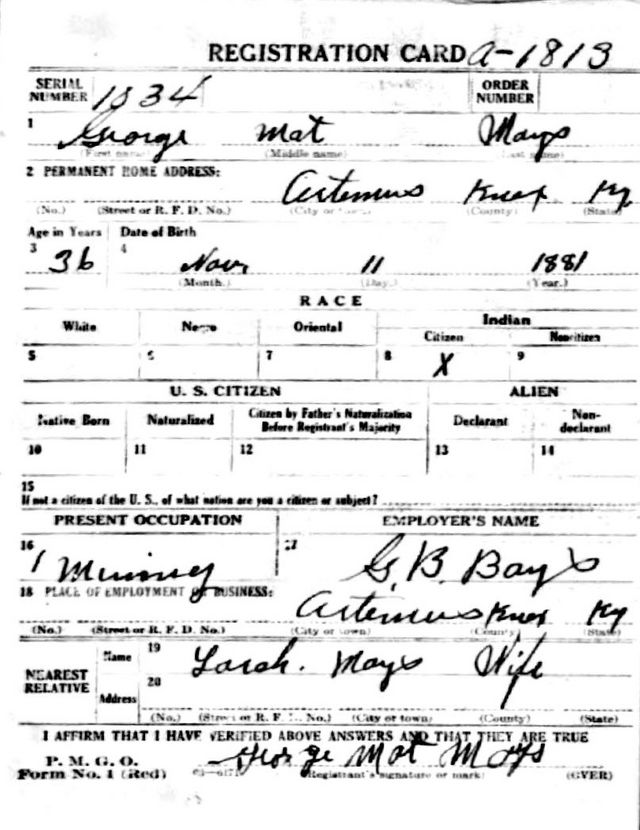 REGISTRATION CARD A-1813
SERIAL NUMBER 1834 ORDER NUMBER
1 George Mat Mays
(First name) (Middle name) (Last name)
2 PERMANENT HOME ADDRESS:
Artemus Knox Ky
(No.) (Street or R. F. D. No.) (City or town) (County) (State)
Age in Years Date of Birth
3 36 4 Nov. 11 1881
(Month.) (Day.) (Year.)
RACE
White Negro Oriental Indian
Citizen Noncitizen
5 6 7 8 X 9
U. S. CITIZEN ALIEN
Native Born Naturalized Citizen by Father's Naturalization Before Registrant's Majority Declarant Non-declarant
10 11 12 13 14
15
If not a citizen of the U. S., of what nation are you a citizen or subject?
PRESENT OCCUPATION EMPLOYER'S NAME
16 17
Mining G. B. Bays
18 PLACE OF EMPLOYMENT OR BUSINESS:
Artemus Knox Ky
(No.) (Street or R. F. D. No.) (City or town) (County) (State)
NEAREST RELATIVE
Name 19 Sarah. Mays Wife
Address 20
(No.) (Street or R. F. D. No.) (City or town) (County) (State)
I AFFIRM THAT I HAVE VERIFIED ABOVE ANSWERS AND THAT THEY ARE TRUE
P. M. G. O.
Form No. 1 (Red) George Mat Mays
(Registrant's signature or mark) (OVER)